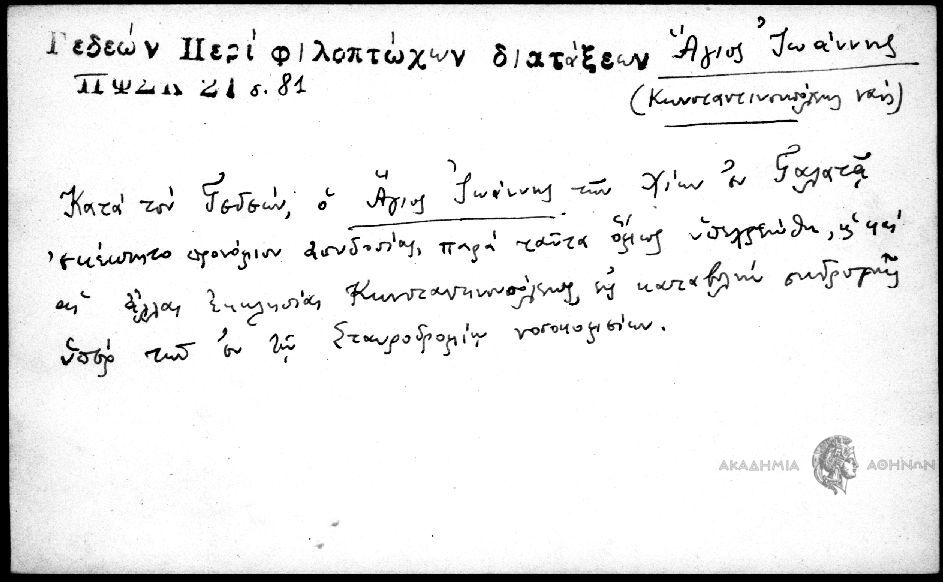 Γεδεών Περί φιλοπτώχων διατάξεων Ἅγιος Ἰωάννης
ΠΨΣΚ 21 σ. 81
(Κωνσταντινουπόλεως ναός)
Κατά τον Γεδεών, ὁ Ἅγιος Ἰωάννης τῶν Χίων ἐν Γαλατᾷ
ἐκέκτητο προνόμιον ἀσυδοσίας, παρά ταῦτα ὅμως ὑπεχρεώθη, ὡς καί
αἱ ἄλλαι ἐκκλησίαι Κωνσταντινουπόλεως, εἰς καταβολήν συνδρομῆς
ὑπέρ τοῦ ἐν τῷ Σταυροδρομίῳ νοσοκομείου.
ΑΚΑΔΗΜΙΑ ΑΘΗΝΩΝ